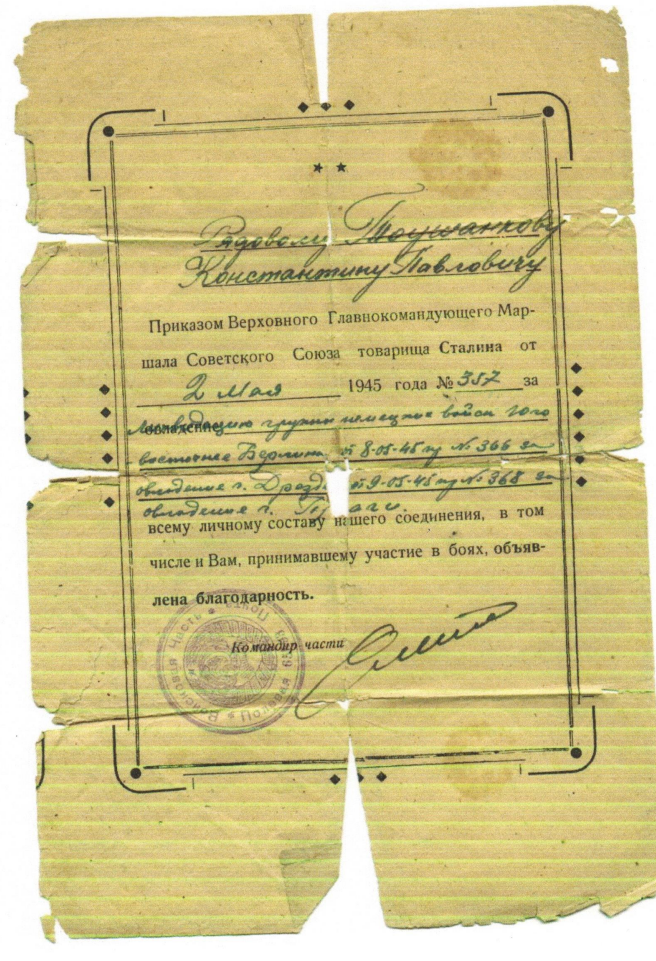 Рядовому Тоушанкову
Константину Павловичу
Приказом Верховного Главнокомандующего Мар-
шала Советского Союза товарища Сталина от
2 Мая 1945 года № 357 за
овладение
Ликвидацию группы немецких войск юго
восточнее Берлина, от 8-05-45 пр № 366 за
овладение г. Дрезд от 9-05-45 пр № 368 за
овладение г. Праги.
всему личному составу нашего соединения, в том
числе и Вам, принимавшему участие в боях, объяв-
лена благодарность.
Командир части
Войсковая Часть Полевая Почта